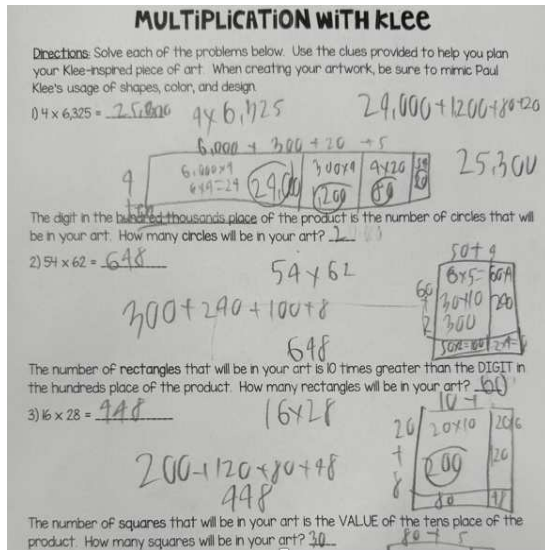 MULTIPLICATION WITH KLEE
Directions: Solve each of the problems below. Use the clues provided to help you plan
your Klee-inspired piece of art. When creating your artwork, be sure to mimic Paul
Klee's usage of shapes, color, and design.
1) 4 x 6,325 =
24,000+1200+80+20
6,000 + 300 + 20 + 5
4
6,000x4
6x4=24
300x4
1,200
4x20
80
25,300
The digit in the hundred thousands place of the product is the number of circles that will
be in your art. How many circles will be in your art? 2
2) 54 x 62 = 648
54 x 62
50+4
300+240+100+8
648
The number of rectangles that will be in your art is 10 times greater than the DIGIT in
the hundreds place of the product. How many rectangles will be in your art? 60
3) 16 x 28 = 448
16x28
20
+
8
20x10
200
20x6
120
80
48
200+120+80+48
448
The number of squares that will be in your art is the VALUE of the tens place of the
product. How many squares will be in your art? 30
80 + 5